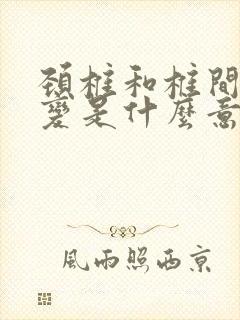 頸椎和椎間
變是什麼意
風雨照西京